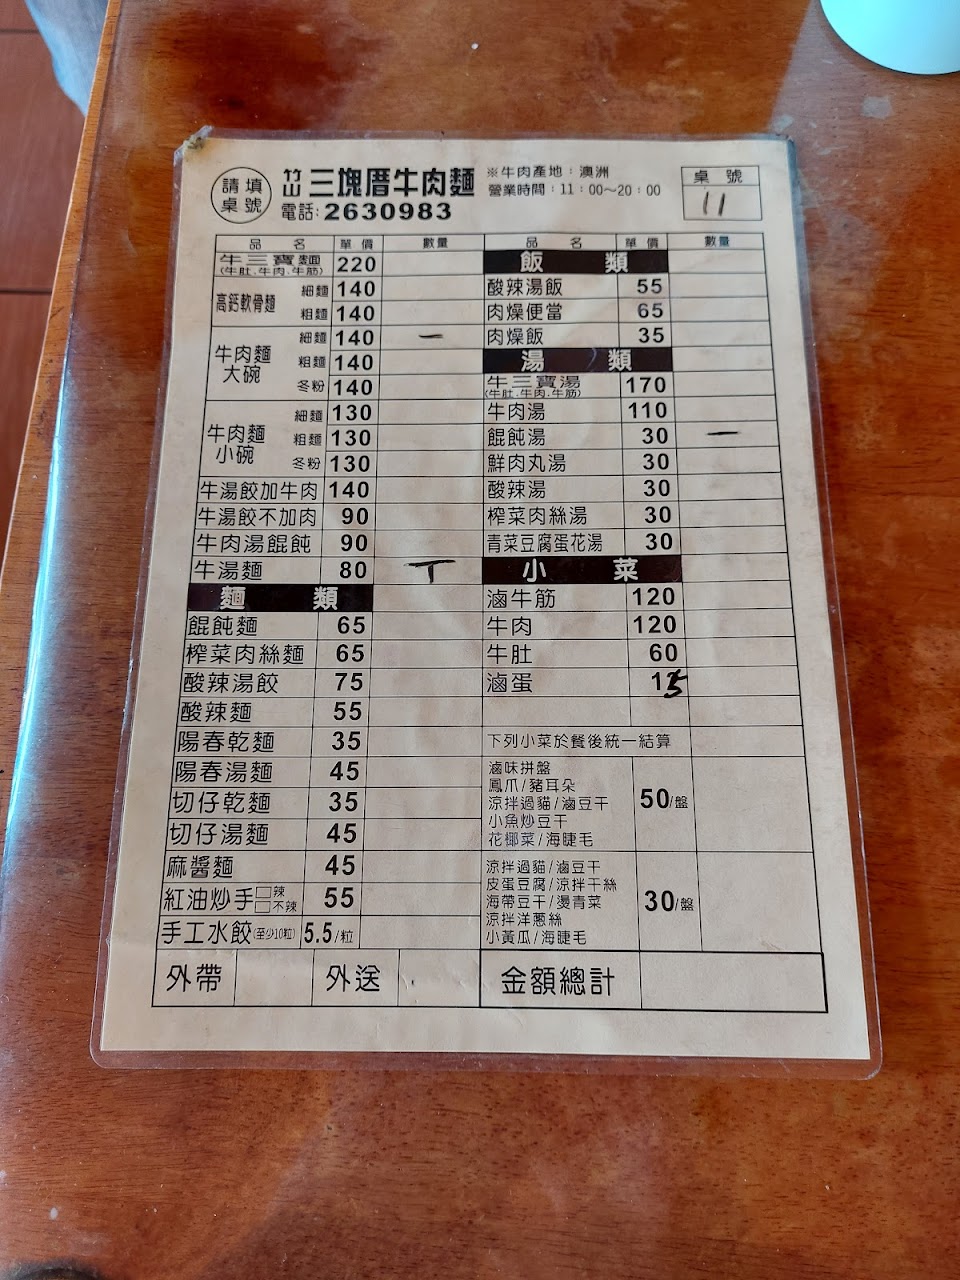 請填
桌號
竹山 三塊厝牛肉麵
電話:2630983
※牛肉產地:澳洲
營業時間:11:00~20:00
桌號
11
品名 單價 數量
牛三寶麵 220
(牛肚.牛肉.牛筋)
高鈣軟骨麵 細麵 140
粗麵 140
牛肉麵大碗 細麵 140 一
粗麵 140
冬粉 140
牛肉麵小碗 細麵 130
粗麵 130
冬粉 130
牛湯餃加牛肉 140
牛湯餃不加肉 90
牛肉湯餛飩 90
牛湯麵 80 丅
麵類
餛飩麵 65
榨菜肉絲麵 65
酸辣湯餃 75
酸辣麵 55
陽春乾麵 35
陽春湯麵 45
切仔乾麵 35
切仔湯麵 45
麻醬麵 45
紅油炒手 □辣 □不辣 55
手工水餃(至少10粒) 5.5/粒
外帶 外送
品名 單價 數量
飯類
酸辣湯飯 55
肉燥便當 65
肉燥飯 35
湯類
牛三寶湯 170
(牛肚.牛肉.牛筋)
牛肉湯 110
餛飩湯 30 一
鮮肉丸湯 30
酸辣湯 30
榨菜肉絲湯 30
青菜豆腐蛋花湯 30
小菜
滷牛筋 120
牛肉 120
牛肚 60
滷蛋 15
下列小菜於餐後統一結算
滷味拼盤
鳳爪/豬耳朵
涼拌過貓/滷豆干
小魚炒豆干
花椰菜/海睫毛
50/盤
涼拌過貓/滷豆干
皮蛋豆腐/涼拌干絲
海帶豆干/燙青菜
涼拌洋蔥絲
小黃瓜/海睫毛
30/盤
金額總計